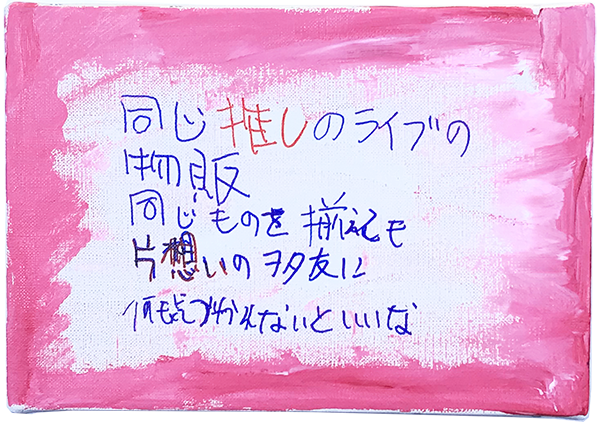 同じ推しのライブの
物販
同じものを揃えても
片想いのヲタ友に
何も気づかれないといいな